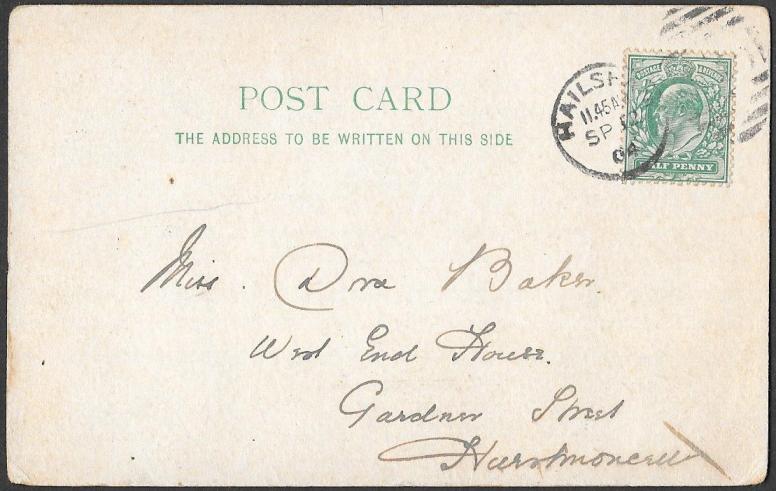 POST CARD
THE ADDRESS TO BE WRITTEN ON THIS SIDE
HAILSH
11.45 A
SP
04
POSTAGE REVENUE
HALF PENNY
Miss. Baker.
West End House.
Gardner Street
Hurstmonceux